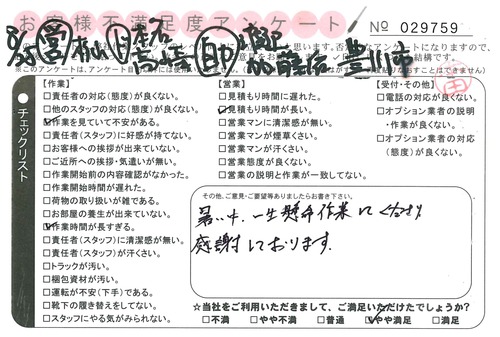 お客様不満足度アンケート
No 029759
8/25 営 印 豊川市
チェックリスト
【作業】
□責任者の対応(態度)が良くない。
□他のスタッフの対応(態度)が良くない。
☑作業を見ていて不安がある。
□責任者(スタッフ)に好感が持てない。
□お客様への挨拶が出来ていない。
□ご近所への挨拶・気遣いが無い。
□作業開始前の内容確認がなかった。
□作業開始時間が遅れた。
□荷物の取り扱いが雑である。
□お部屋の養生が出来ていない。
☑作業時間が長すぎる。
□責任者(スタッフ)に清潔感が無い。
□責任者(スタッフ)が汗くさい。
□トラックが汚い。
□梱包資材が汚い。
□運転が不安(下手)である。
□靴下の履き替えをしてない。
□スタッフにやる気がみられない。
【営業】
□見積もり時間に遅れた。
☑見積もり時間が長い。
□営業マンに清潔感が無い。
□営業マンが煙草くさい。
□営業マンが汗くさい。
□営業態度が良くない。
□営業の説明と作業が一致してない。
【受付・その他】
□電話の対応が良くない。
□オプション業者の説明・作業が良くない。
□オプション業者の対応(態度)が良くない。
その他、ご意見・ご要望等ありましたらお書き下さい。
暑い中、一生懸命作業して下さり
感謝しております。
☆当社をご利用いただきまして、ご満足いただけたでしょうか?
□不満 □やや不満 □普通 ☑やや満足 □満足